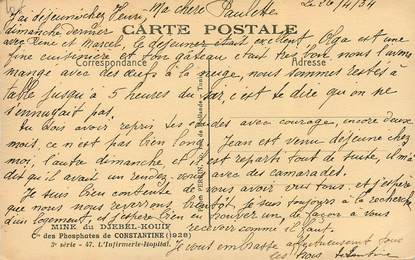 Ma chère Paulette Le 26/4/34
J'ai déjeuné chez Henri,
dimanche dernier CARTE POSTALE
avec René et Marcel, le déjeuner était excellent, Olga est une
fine cuisinière
Correspondance
Adresse
mangé avec des œufs à la neige, nous sommes restés à
table jusqu'à 5 heures du soir, c'est te dire que on ne
s'ennuyait pas.
Tu dois avoir repris les études avec courage, encore deux
mois, ce n'est pas bien long. Jean est venu déjeuner chez
moi, l'autre dimanche et est reparti tout de suite, il m'a
dit qu'il avait un rendez-vous avec des camarades.
Je suis bien contente de vous avoir vus tous, et j'espère
que nous nous reverrons bientôt. Je suis toujours à la recherche
d'un logement, et j'espère bien en trouver un, de façon à vous
recevoir comme il faut.
Je vous embrasse affectueusement tous
MINE du DJEBEL-KOUIF
Cie des Phosphates de CONSTANTINE (1928)
3e série - 47. L'Infirmerie-Hopital.